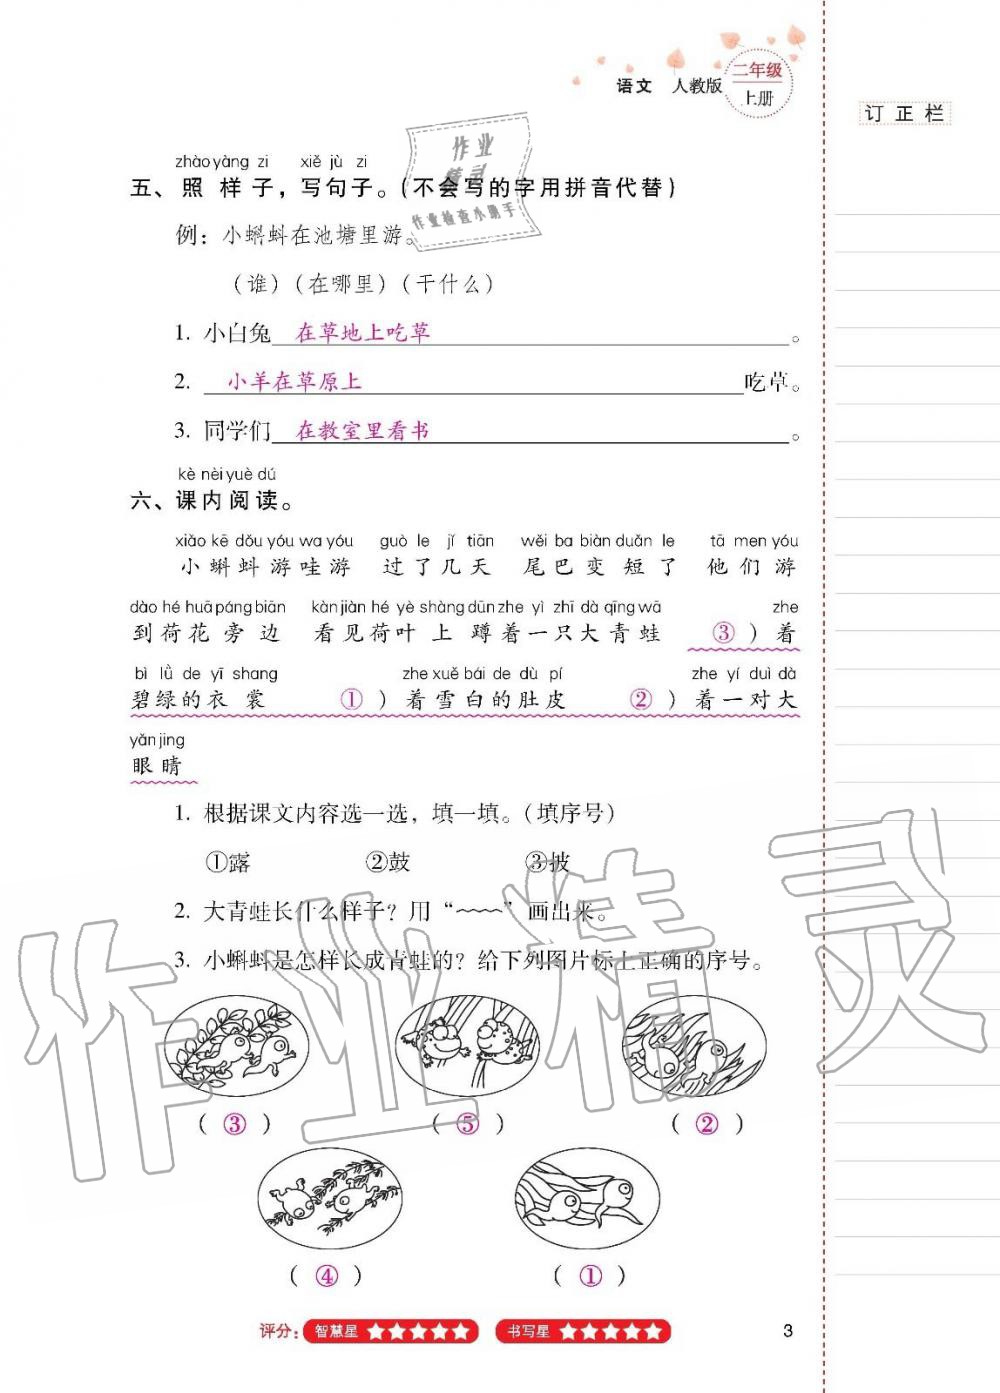 语文 人教版 二年级
上册
订正栏
zhào yàng zi xiě jù zi
五、照样子，写句子。（不会写的字用拼音代替）
例：小蝌蚪在池塘里游。
（谁）（在哪里）（干什么）
1. 小白兔 在草地上吃草 。
2. 小羊在草原上 吃草。
3. 同学们 在教室里看书 。
kè nèi yuè dú
六、课内阅读。
xiǎo kē dǒu yóu wa yóu guò le jǐ tiān wěi ba biàn duǎn le tā men yóu
小蝌蚪游哇游 过了几天 尾巴变短了 他们游
dào hé huā páng biān kàn jiàn hé yè shàng dūn zhe yì zhī dà qīng wā zhe
到荷花旁边 看见荷叶上蹲着一只大青蛙 ③ ）着
bì lǜ de yī shang zhe xuě bái de dù pí zhe yí duì dà
碧绿的衣裳 ① ）着雪白的肚皮 ② ）着一对大
yǎn jing
眼睛
1. 根据课文内容选一选，填一填。（填序号）
①露 ②鼓 ③披
2. 大青蛙长什么样子？用“﹏﹏”画出来。
3. 小蝌蚪是怎样长成青蛙的？给下列图片标上正确的序号。
（ ③ ） （ ⑤ ） （ ② ）
（ ④ ） （ ① ）
评分：智慧星 ★★★★★ 书写星 ★★★★★
3
作业
精灵
作业检查小助手
作业精灵